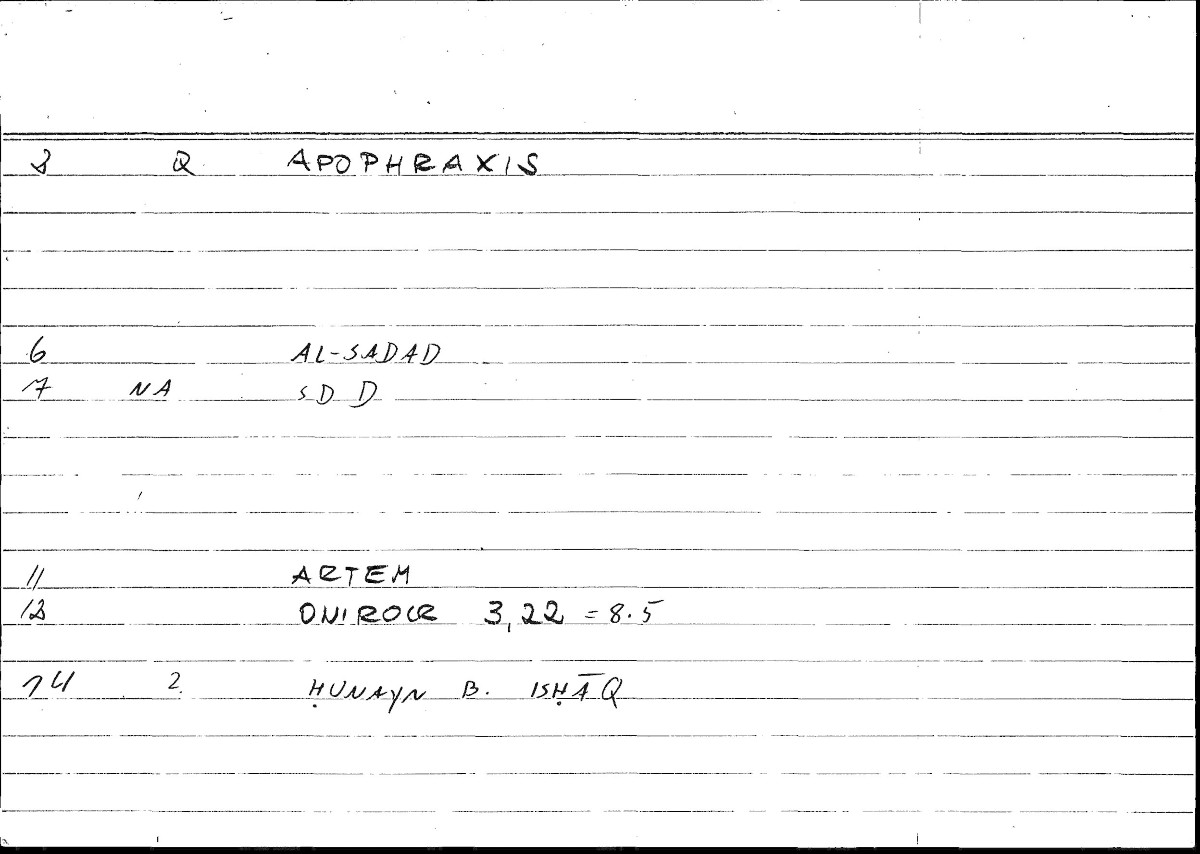 1 Q APOPHRAXIS
6 AL-SADAD
7 NA SDD
11 ARTEM
12 ONIROCR 3,22 = 8.5
14 2 ḤUNAYN B. ISḤĀQ